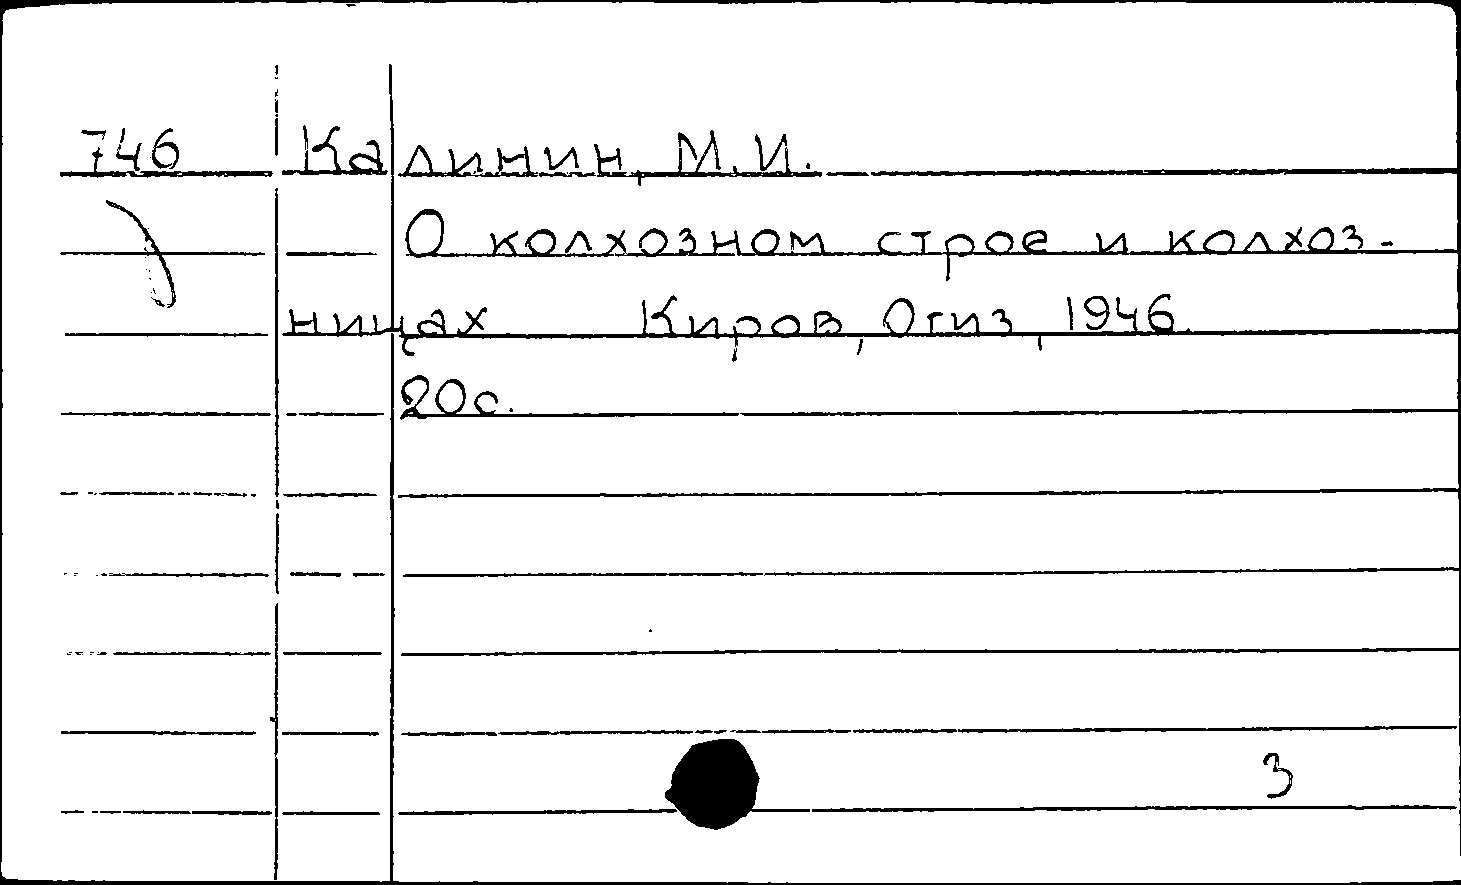 746 Калинин, М.И.
О колхозном строе и колхоз-
ницах Киров, Огиз, 1946
20с.
3